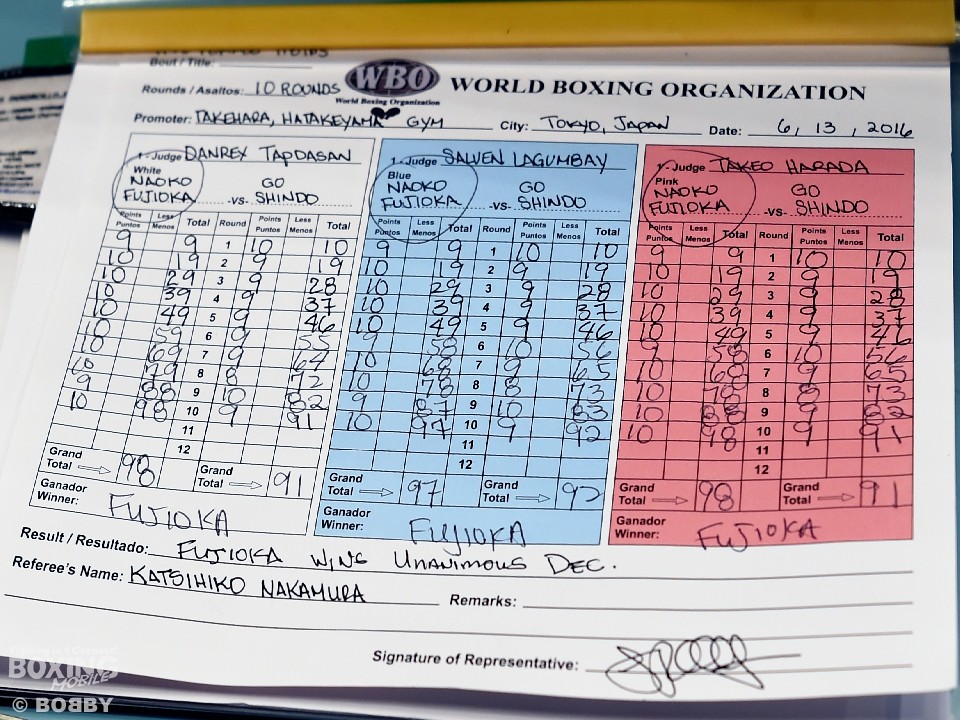 Bout / Title:
Rounds / Asaltos: 10 ROUNDS
WBO
World Boxing Organization
WORLD BOXING ORGANIZATION
Promoter: TAKEHARA, HATAKEYAMA GYM City: TOKYO, JAPAN Date: 6, 13, 2016
1 - Judge DANREX TAPDASAN
White
NAOKO FUJIOKA -vs- GO SHINDO
Points Puntos Less Menos Total Round Points Puntos Less Menos Total
9 9 1 10 10
10 19 2 9 19
10 29 3 9 28
10 39 4 9 37
10 49 5 9 46
10 59 6 9 55
10 69 7 9 64
10 79 8 8 72
9 88 9 10 82
10 98 10 9 91
11
12
Grand Total 98 Grand Total 91
Ganador Winner: FUJIOKA
1 - Judge SALVEN LAGUMBAY
Blue
NAOKO FUJIOKA -vs- GO SHINDO
Points Puntos Less Menos Total Round Points Puntos Less Menos Total
9 9 1 10 10
10 19 2 9 19
10 29 3 9 28
10 39 4 9 37
10 49 5 9 46
9 58 6 10 56
10 68 7 9 65
10 78 8 8 73
9 87 9 10 83
10 97 10 9 92
11
12
Grand Total 97 Grand Total 92
Ganador Winner: FUJIOKA
1 - Judge TAKEO HARADA
Pink
NAOKO FUJIOKA -vs- GO SHINDO
Points Puntos Less Menos Total Round Points Puntos Less Menos Total
9 9 1 10 10
10 19 2 9 19
10 29 3 9 28
10 39 4 9 37
10 49 5 9 46
9 58 6 10 56
10 68 7 9 65
10 78 8 8 73
10 88 9 9 82
10 98 10 9 91
11
12
Grand Total 98 Grand Total 91
Ganador Winner: FUJIOKA
Result / Resultado: FUJIOKA WINS UNANIMOUS DEC.
Referee's Name: KATSIHIKO NAKAMURA Remarks:
Signature of Representative:
BOXING
MOBILE
© BOBBY